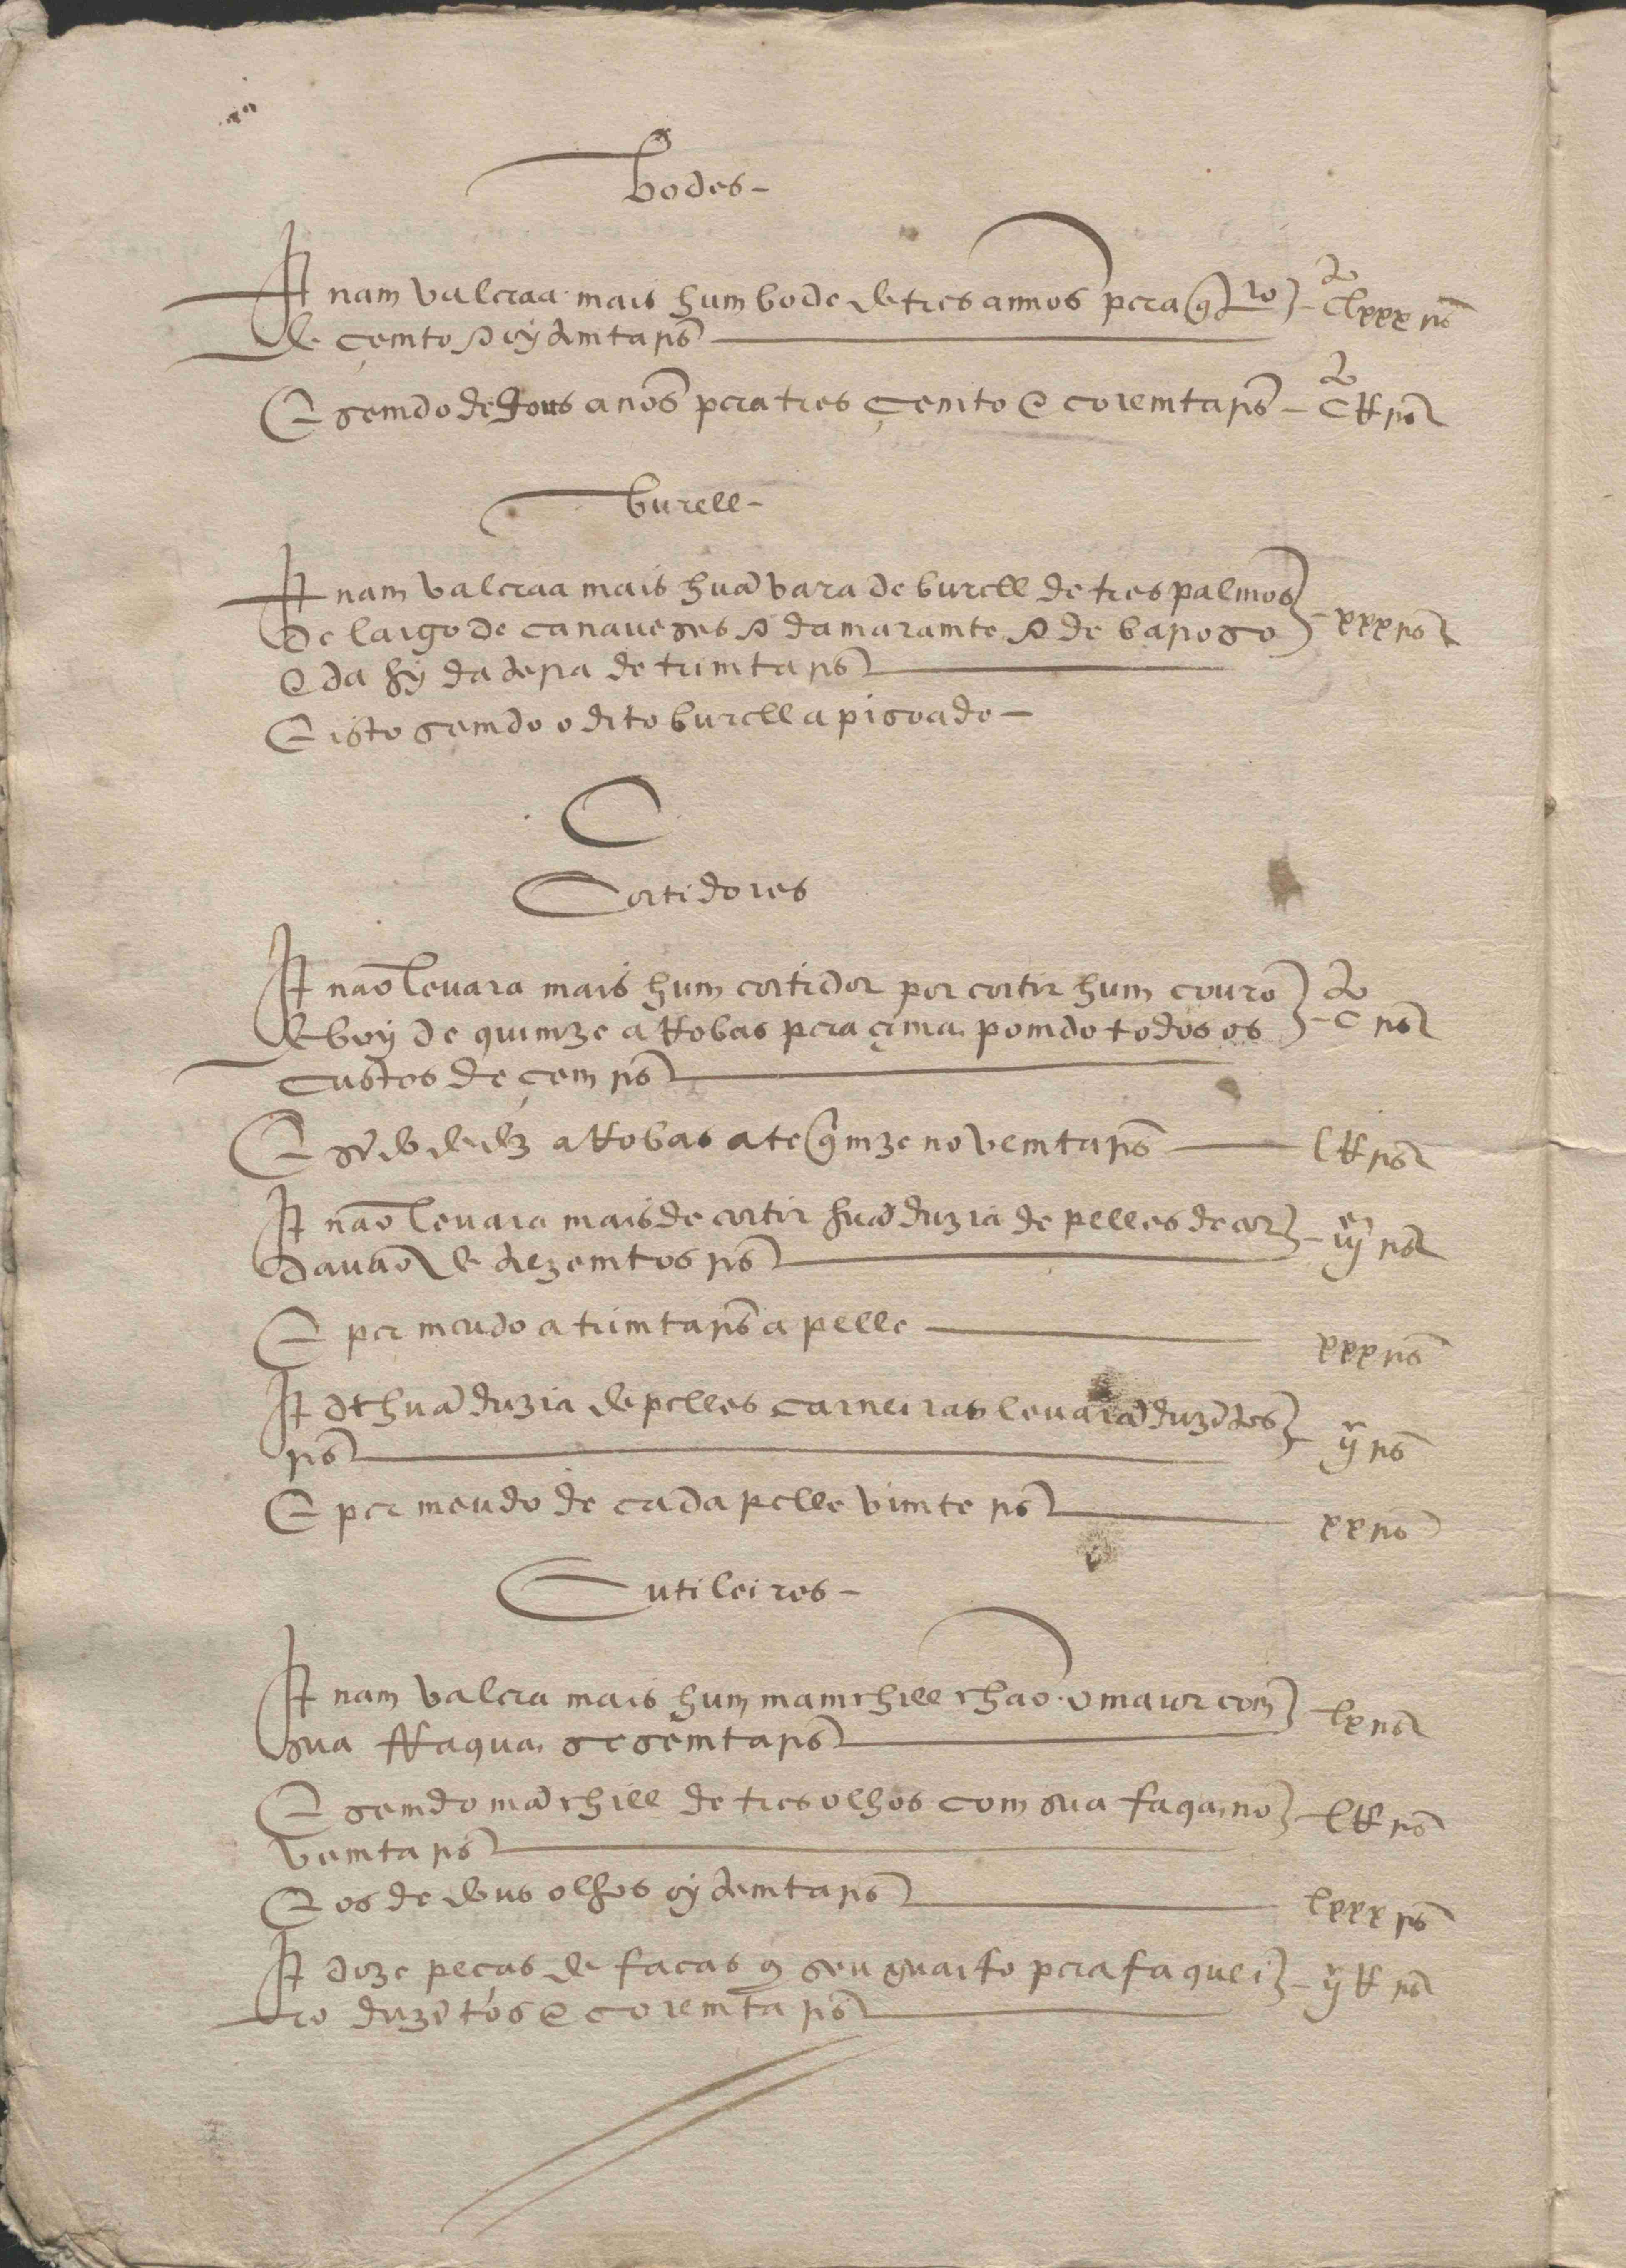 bodes -
It nam valeraa mais hum bode de tres annos pera qtro - clxxx rs
de çemto & oydemta rs
E semdo de dous anos pera tres çemto e coremta rs - cR rs
burell -
It nam valeraa mais huã vara de burell de tres palmos
de largo de canaueses & damaramte & de baroso - xxx rs
e da hy da dera de trimta rs
E isto semdo o dito burell apisoado -
C
Cortidores
It não leuara mais hum cortidor por cortir hum couro
de boy de quimze aRobas pera çima pomdo todos os - c rs
custos de çem rs
E de dez aRobas ate qimze novemta rs lR rs
It não leuara mais de cortir huã duzia de pelles de cor
davão de trezemtos rs - iij rs
E per meudo a trimta rs a pelle xxx rs
It de huã duzia de pelles carneiras leuarã duzẽtos
rs ij rs
E per meudo de cada pelle vimte rs xx rs
Cutileiros -
It nam valera mais hum mamchill chão o maior com lx rs
sua ffaqua sesemta rs
E semdo mãchill de tres olhos com sua faqa no - lR rs
vemta rs
E os de dous olhos oydemta rs lxxx rs
It doze peças de facas q seu guarfo pera faquei - ijR rs
ro duzẽtos e coremta rs